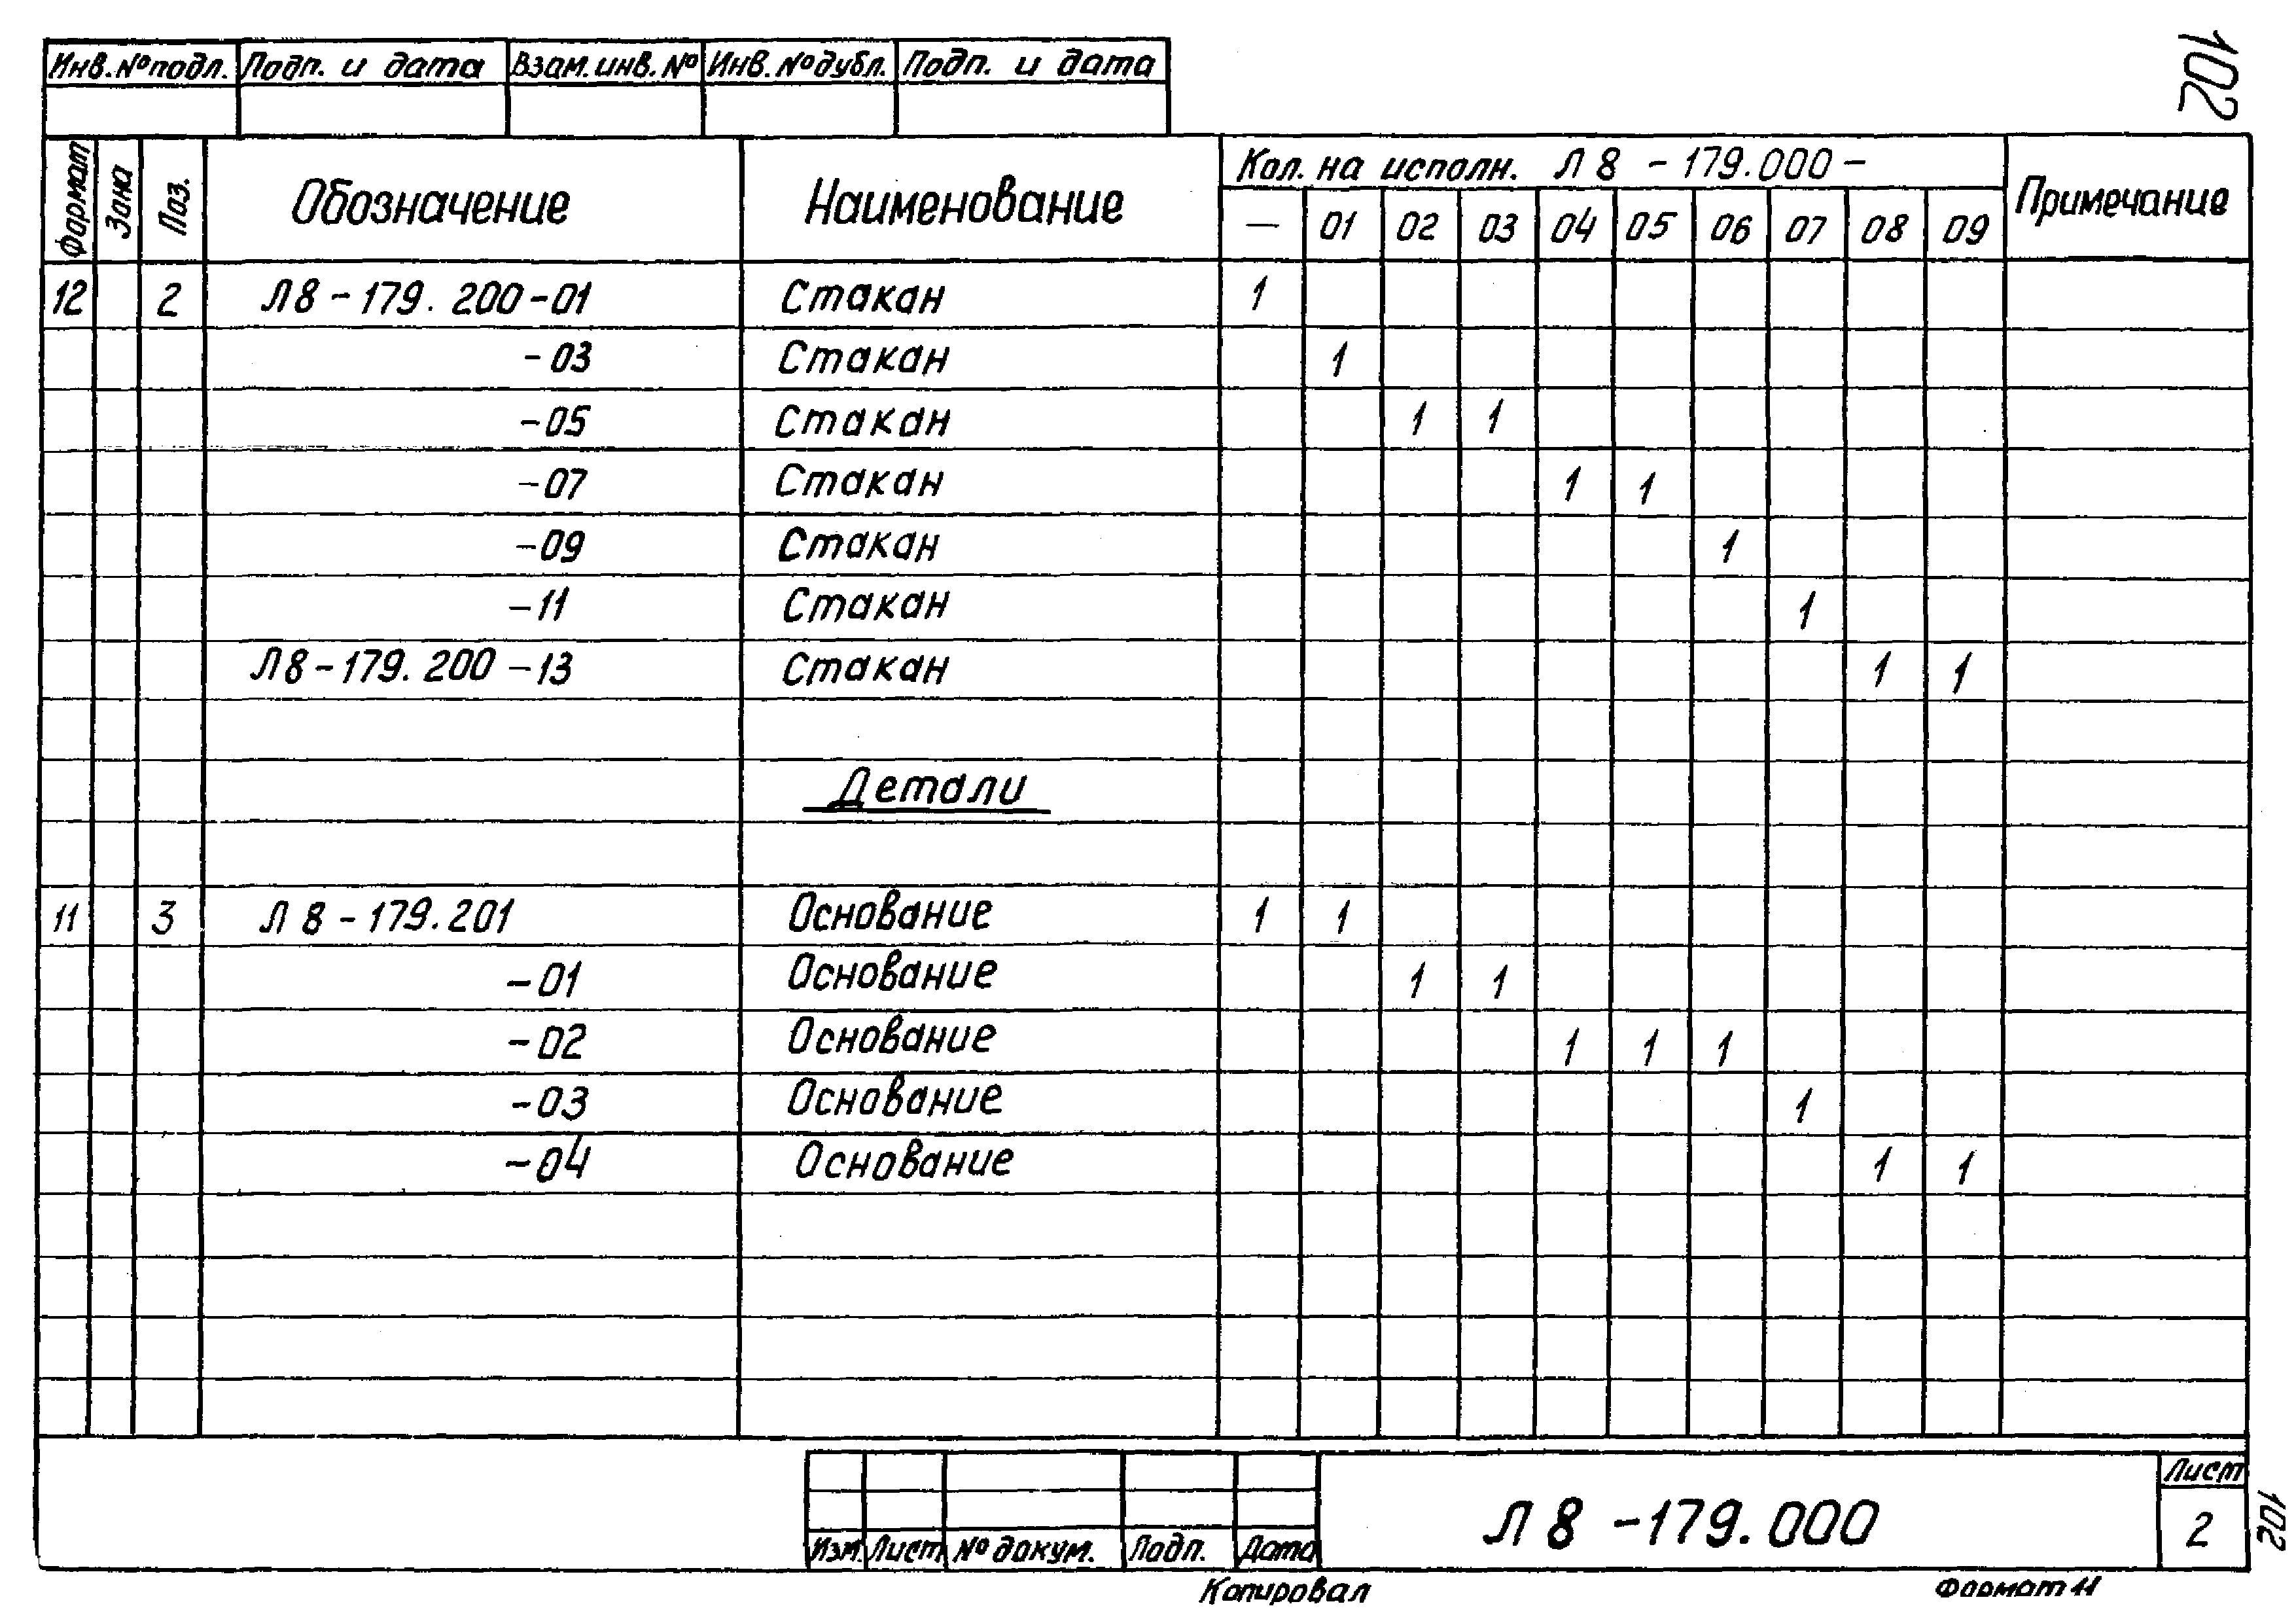 102
Инв. № подл. Подп. и дата Взам. инв. № Инв. № дубл. Подп. и дата
Формат Зона Поз. Обозначение Наименование Кол. на исполн. Л 8 - 179.000 - Примечание
— 01 02 03 04 05 06 07 08 09
12 2 Л 8 - 179. 200 - 01 Стакан 1
- 03 Стакан 1
- 05 Стакан 1 1
- 07 Стакан 1 1
- 09 Стакан 1
- 11 Стакан 1
Л 8 - 179. 200 - 13 Стакан 1 1
Детали
11 3 Л 8 - 179. 201 Основание 1 1
- 01 Основание 1 1
- 02 Основание 1 1 1
- 03 Основание 1
- 04 Основание 1 1
Изм. Лист № докум. Подп. Дата
Л 8 - 179. 000
Лист
2
102
Копировал
Формат 11